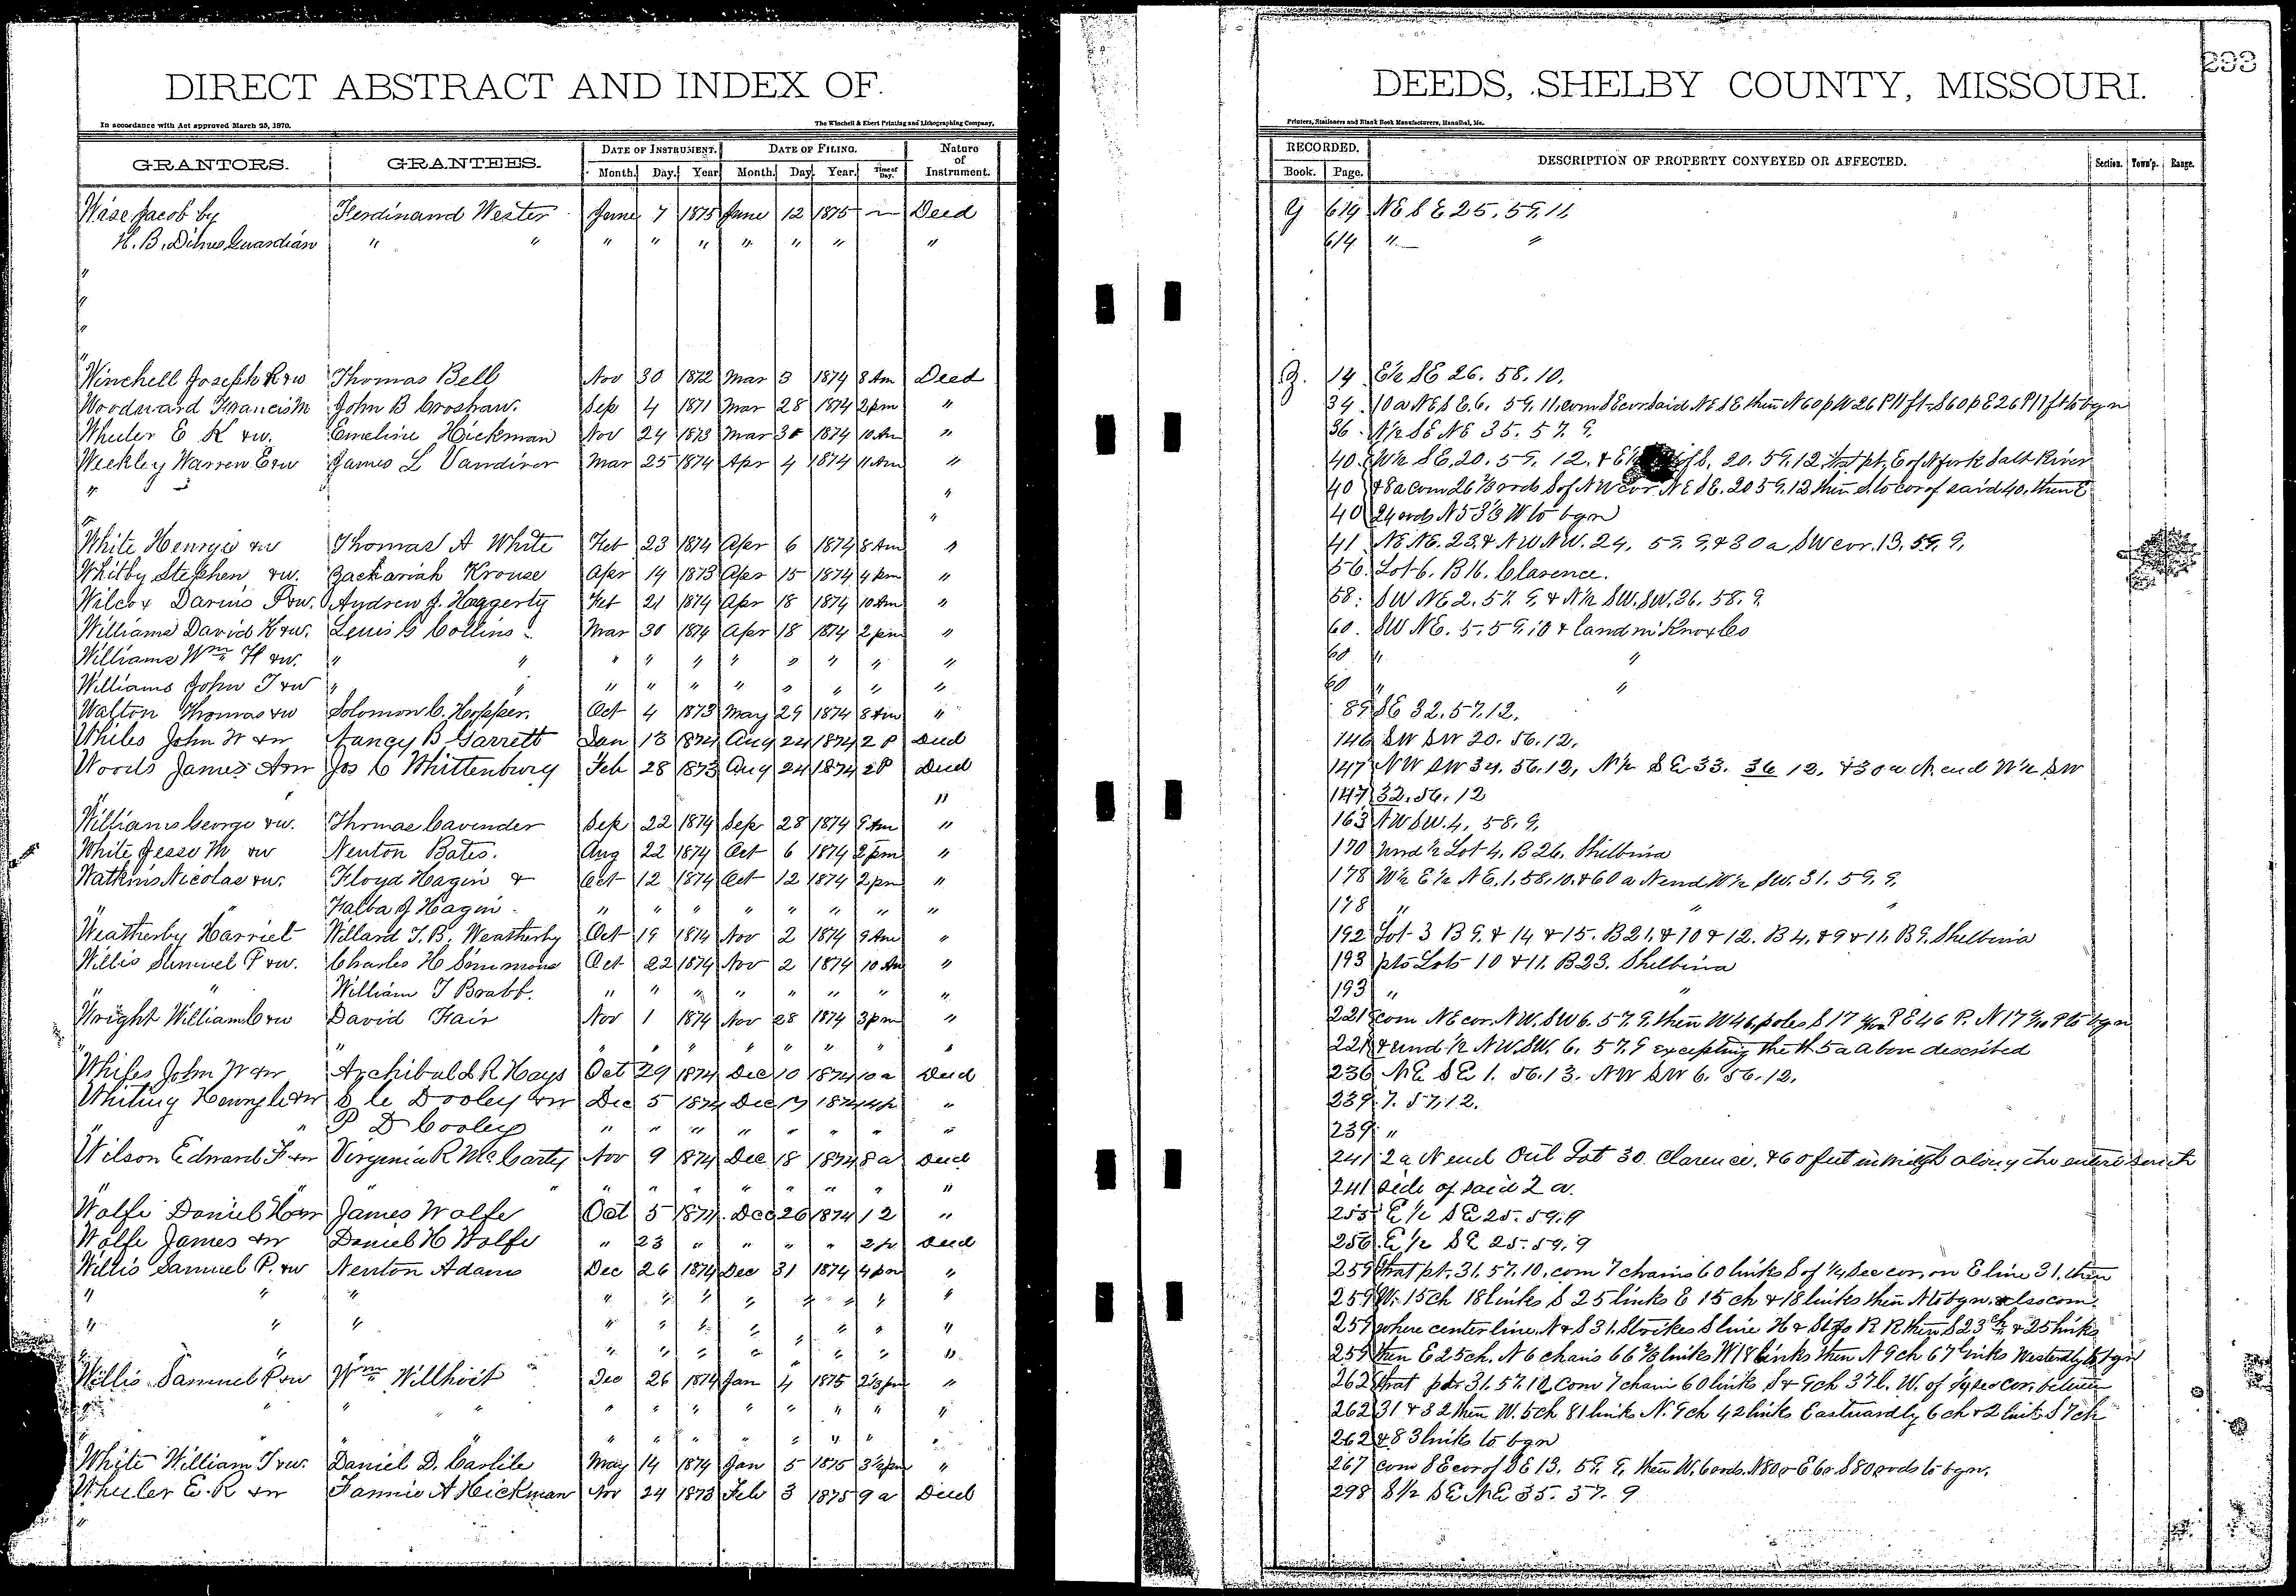 293
DIRECT ABSTRACT AND INDEX OF DEEDS, SHELBY COUNTY, MISSOURI.
In accordance with Act approved March 25, 1870. The Winchell & Ebert Printing and Lithographing Company, Printers, Stationers and Blank Book Manufacturers, Hannibal, Mo.
GRANTORS. GRANTEES. DATE OF INSTRUMENT. DATE OF FILING. Nature of Instrument. RECORDED. DESCRIPTION OF PROPERTY CONVEYED OR AFFECTED. Section. Town'p. Range.
Month. Day. Year Month. Day. Year. Time of Day. Book. Page.
Wase Jacob by Ferdinand Wester June 7 1875 June 12 1875 — Deed G 614 NE SE 25. 59. 11
H. B. Guardian " " " " " " " " " 614 " "
"
"
"
"
Winchell Joseph R & w Thomas Bell Nov 30 1872 Mar 3 1874 8 Am Deed 14 E½ SE 26. 58. 10.
Woodward Francis M John B Croshaw. Sep 4 1871 Mar 28 1874 2 pm " 34 10 a NE SE. 6. 59. 11, com SE cor said NE SE then N 60 p W 26 P 11 ft S 60 p E 26 P 11 ft to bgn
Wheeler E R & w. Emeline Hickman Nov 24 1873 Mar 30 1874 10 Am " 36 N½ SE NE 35. 57. 9.
Weekley Warren E & w James L Vandiver Mar 25 1874 Apr 4 1874 11 Am " 40 W½ SE, 20. 59. 12. & E½ 20. 59. 12 that pt. E of N fork Salt River
" " 40 & 8 a com 26 ⅔ rods S of NW cor. NE SE. 20 59. 12 then S. to cor of said 40, then E
" " 40 24 rods N 53⅓ W to bgn
White Henry & w Thomas A White Feb 23 1874 Apr 6 1874 8 Am " 41 NE NE. 23. & NW NW. 24. 59. 9, & 30 a SW cor. 13. 59. 9.
Whitby Stephen & w. Zachariah Krouse Apr 14 1873 Apr 15 1874 4 pm " 56 Lot 6. B 16. Clarence.
Wilcox Darius P & w. Andrew J. Haggerty Feb 21 1874 Apr 18 1874 10 Am " 58 SW NE 2. 57. 9. & N½ SW. SW. 36. 58. 9.
Williams David H & w. Lewis G Collins Mar 30 1874 Apr 18 1874 2 pm " 60 SW NE. 5. 59. 10 & land in Knox Co
Williams Wm H & w. " " " " " " " " " 60 " "
Williams John T & w " " " " " " " " " 60 " "
Walton Thomas & w Solomon C. Hopper. Oct 4 1873 May 29 1874 8 Am " 89 SE 32. 57. 12.
Whiles John W & w Nancy B Garrett Jan 13 1874 Aug 24 1874 2 P Deed 146 SW SW 20. 56. 12.
Woods James A & w Jos C Whittenburg Feb 28 1873 Aug 24 1874 2 P Deed 147 NW SW 34. 56. 12, N½ SE 33. 56 12. & 30 a N. end W½ SW
" " 147 32. 56. 12
Williams George & w. Thomas Cavender Sep 22 1874 Sep 28 1874 9 Am " 163 NW SW. 4. 58. 9.
White Jesse M & w Newton Bates. Aug 22 1874 Oct 6 1874 2 pm " 170 und ½ Lot 4. B 26. Shelbina
Watkins Nicolas & w. Floyd Hagin & Oct 12 1874 Oct 12 1874 2 pm " 178 W½ E½ NE. 1. 58. 10. & 60 a N end W½ SW. 31. 59. 9.
" " Halba J Hagin " " " " " " " 178 " " "
Weatherby Harriet Willard T. B. Weatherby Oct 19 1874 Nov 2 1874 9 Am " 192 Lot 3 B 9. & 14 & 15. B 21. & 10 & 12. B 4. & 9 & 11. B 9. Shelbina
Willis Samuel P & w. Charles H Simmons Oct 22 1874 Nov 2 1874 10 Am " 193 pts Lots 10 & 11. B 23. Shelbina
" " William T Brabb. " " " " " " " 193 " "
Wright William C & w David Hair Nov 1 1874 Nov 28 1874 3 pm " 221 com NE cor. NW. SW 6. 57. 9. then W 46 poles S 17 P E 46 P. N 17 P to bgn
" " " " " " " " 221 & und ½ NW SW. 6. 57. 9 excepting the 5 a above described
Whiles John W & w Archibald R Hays Oct 29 1874 Dec 10 1874 10 a Deed 236 NE SE 1. 56. 13. NW SW 6. 56. 12.
Whiting Henry & w Dooley & w Dec 5 1874 Dec 17 1874 4 p " 239 7. 57. 12.
" " P D Cooley " " " " " " " 239 "
Wilson Edward F & w Virginia R McCarty Nov 9 1874 Dec 18 1874 8 a Deed 241 2 a N end Out Lot 30 Clarence, & 60 feet in width along the entire south
" " " " " " " " " " 241 side of said 2 a.
Wolfe Daniel H & w James Wolfe Oct 5 1874 Dec 26 1874 12 " 255 E½ SE 25. 59. 9
Wolfe James & w Daniel H Wolfe " 23 " " " " 2 p Deed 256 E½ SE 25. 59. 9
Willis Samuel P. & w Newton Adams Dec 26 1874 Dec 31 1874 4 pm " 259 that pt. 31. 57. 10. com 7 chains 60 links S of ¼ Sec cor. on E line 31. then
" " " " " " " " " " 259 W. 15 ch 18 links S 25 links E 15 ch & 18 links then N to bgn. also com.
" " " " " " " " " " 259 where center line. N & S 31. strikes S line H & St Jo R R then S 23 ch & 25 links
" " " " " " " " " 259 then E 25 ch. N 6 chains 66 ⅔ links W 18 links then N 9 ch 67 links Westerdly to bgn
Willis Samuel P & w Wm Willhoit Dec 26 1874 Jan 4 1875 pm " 262 that pts 31. 57. 10. Com 7 chain 60 links S & 9 ch 37 l. W. of ¼ sec cor. between
" " " " " " " " " " 262 31 & 32 then W. 5 ch 81 links N. 9 ch 42 links Eastwardly 6 ch & 2 links S 7 ch
" " " " " " " " " " 262 & 83 links to bgn
White William T & w. Daniel D. Carlile May 14 1874 Jan 5 1875 3½ pm " 267 com SE cor of SE 13. 59. 9. then W. 6 rods. N 80 r E 6 r. S 80 rods to bgn.
Wheeler E. R & w Fannie A Hickman Nov 24 1873 Feb 3 1875 9 a Deed 298 S½ SE NE 35. 57. 9
"